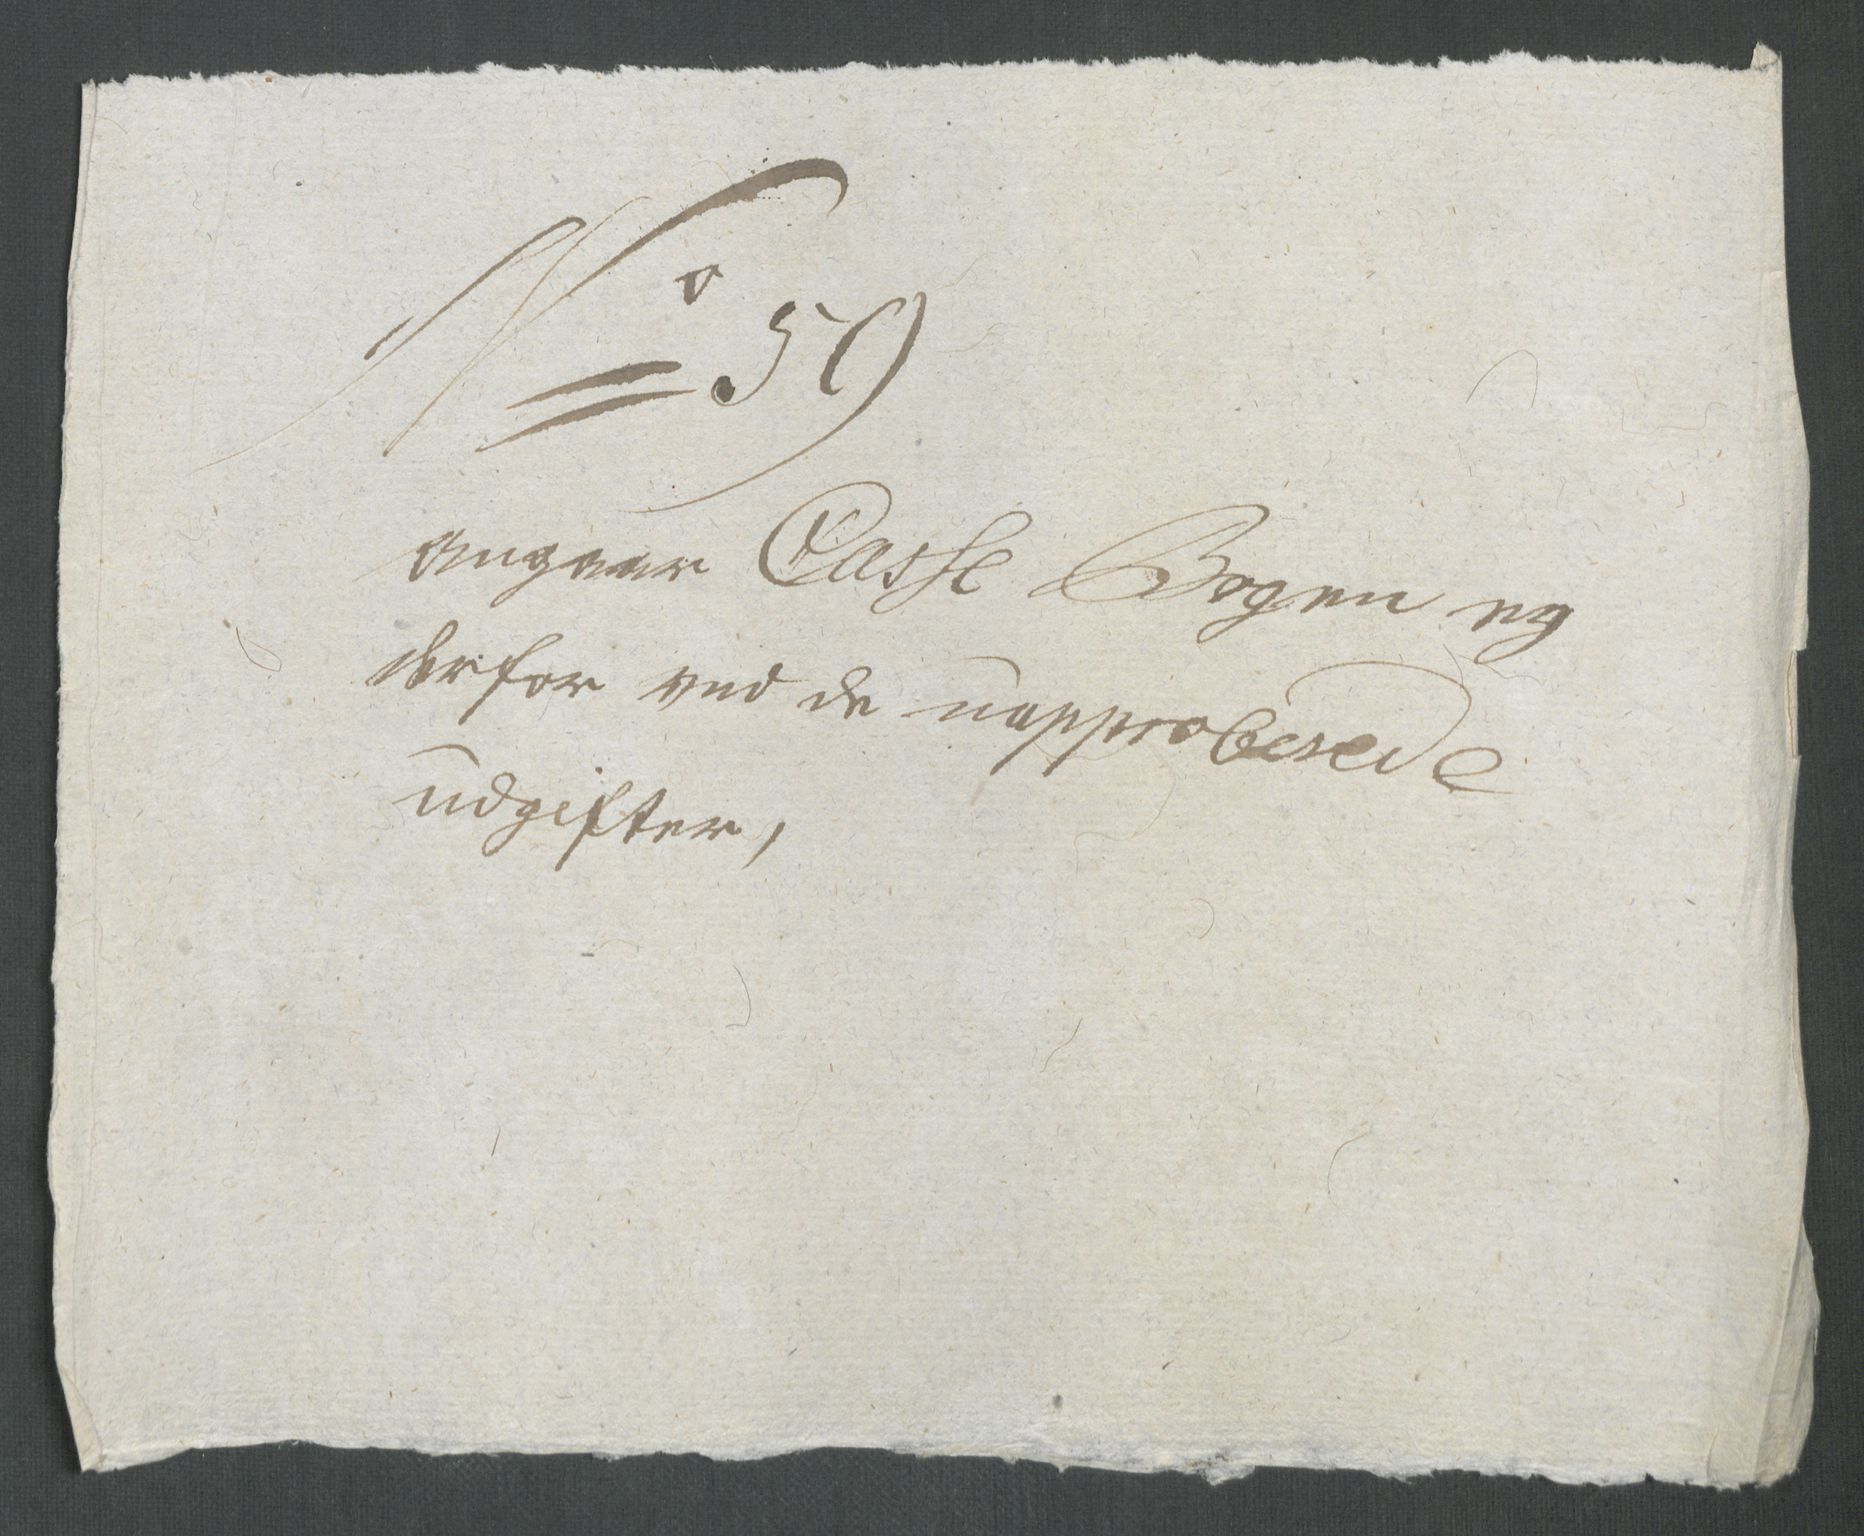 No 59
angaar Casse Bogen og
derfor ved de uapproberede
udgifter,